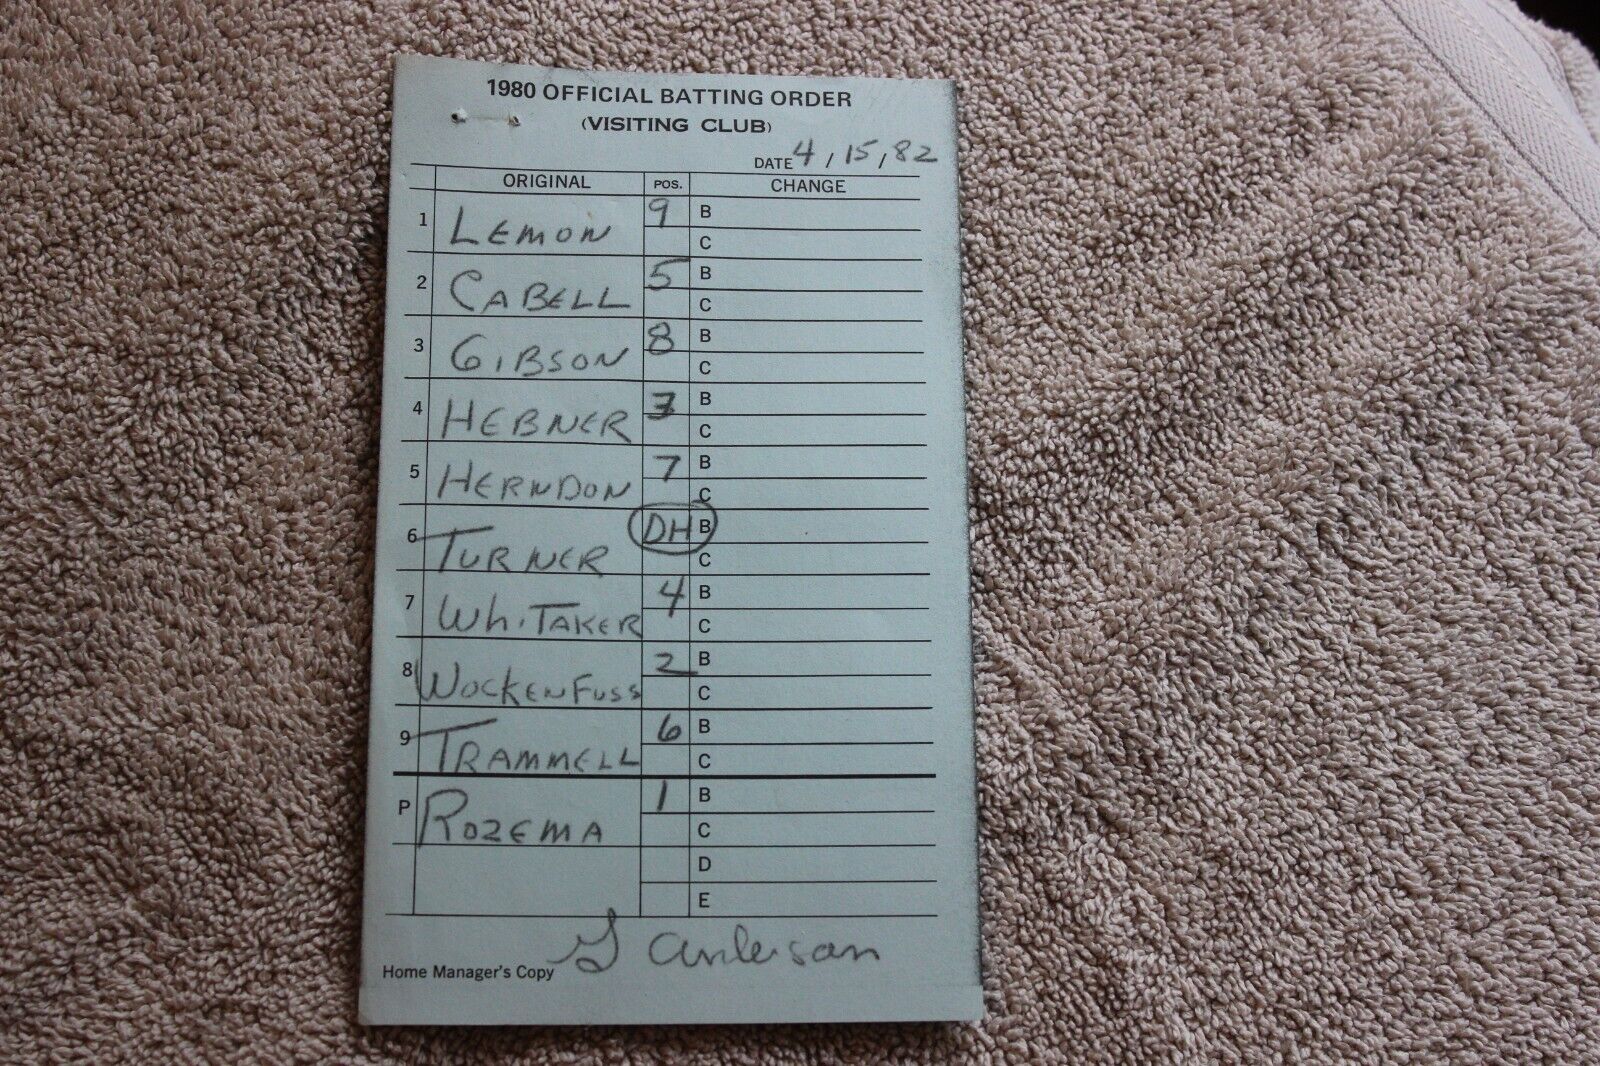 1980 OFFICIAL BATTING ORDER
(VISITING CLUB)
DATE 4/15/82
ORIGINAL POS. CHANGE
1 LEMON 9 B
C
2 CABELL 5 B
C
3 GIBSON 8 B
C
4 HEBNER 3 B
C
5 HERNDON 7 B
C
6 TURNER DH B
C
7 WhiTAKER 4 B
C
8 WOCKENFUSS 2 B
C
9 TRAMMELL 6 B
C
P ROZEMA 1 B
C
D
E
G Anderson
Home Manager's Copy